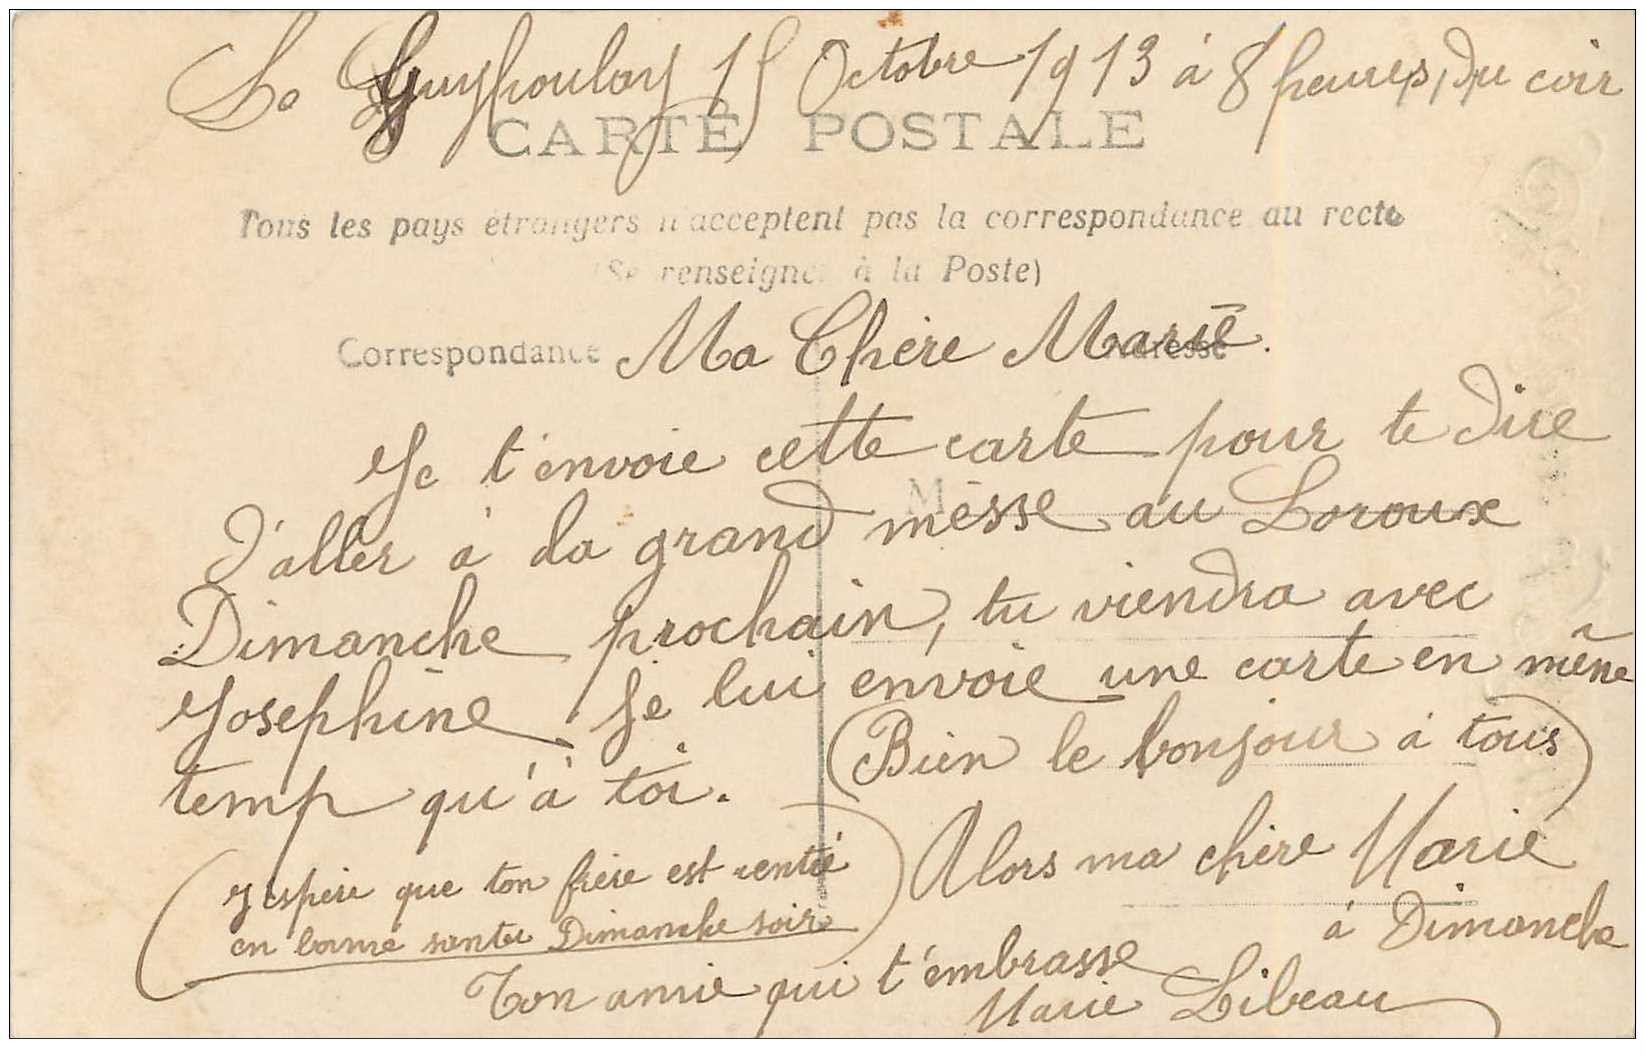 Le Guyhoulay 15 Octobre 1913 à 8 heures, du coir
CARTE POSTALE
Tous les pays étrangers n'acceptent pas la correspondance au recto
(Se renseigner à la Poste)
Correspondance Ma Chère Marie. Adresse
Je t'envoie cette carte pour te dire
M
d'aller à la grand mèsse au Loroux
Dimanche prochain, tu viendra avec
Josephine. Je lui envoie une carte en mêne
temp qu'à toi. (Bien le bonjour à tous)
(J'espère que ton frère est rentré
en bonne santée Dimanche soir)
Alors ma chère Marie
à Dimanche
Ton amie qui t'embrasse
Marie Libeau